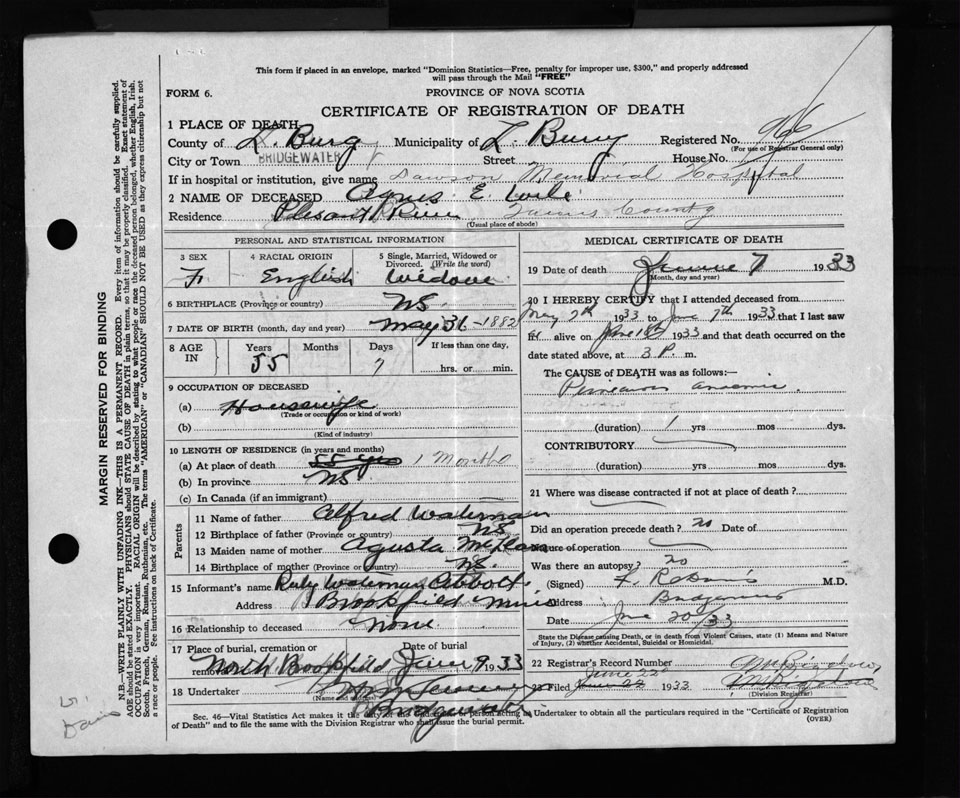 This form if placed in an envelope, marked "Dominion Statistics—Free, penalty for improper use, $300," and properly addressed
will pass through the Mail "FREE"
FORM 6.
PROVINCE OF NOVA SCOTIA
CERTIFICATE OF REGISTRATION OF DEATH
1 PLACE OF DEATH
County of L. Burg Municipality of L. Burg Registered No. 966
(For use of Registrar General only)
City or Town BRIDGEWATER Street House No.
If in hospital or institution, give name Dawson Memorial Hospital
2 NAME OF DECEASED Agnes E. Wile
Residence Plesant River Queens County
(Usual place of abode)
PERSONAL AND STATISTICAL INFORMATION
3 SEX 4 RACIAL ORIGIN 5 Single, Married, Widowed or Divorced. (Write the word)
F. English Widow
6 BIRTHPLACE (Province or country) N.S.
7 DATE OF BIRTH (month, day and year) May 31-1882
8 AGE IN Years Months Days If less than one day,
55 7 hrs. or min.
9 OCCUPATION OF DECEASED
(a) Housewife
(Trade or occupation or kind of work)
(b)
(Kind of industry)
10 LENGTH OF RESIDENCE (in years and months)
(a) At place of death 55 yrs 1 Month
(b) In province N.S.
(c) In Canada (if an immigrant)
Parents
11 Name of father Alfred Waterman
12 Birthplace of father (Province or country) N.S.
13 Maiden name of mother Agusta
14 Birthplace of mother (Province or country) N.S.
15 Informant's name Ruby Waterman Abbott
Address Brookfield Mines
16 Relationship to deceased None
17 Place of burial, cremation or removal Date of burial
North Brookfield June 9, 1933
18 Undertaker
(Name and address)
Bridgewater
MEDICAL CERTIFICATE OF DEATH
19 Date of death June 7 1933
(Month, day and year)
20 I HEREBY CERTIFY that I attended deceased from
May 7th 1933 to June 7th 1933 that I last saw
alive on June 1933 and that death occurred on the
date stated above, at 3 P. m.
The CAUSE of DEATH was as follows:—
(duration) 1 yrs mos dys.
CONTRIBUTORY
(duration) yrs mos dys.
21 Where was disease contracted if not at place of death?
Did an operation precede death? no Date of
Nature of operation
Was there an autopsy? no
(Signed) M.D.
Address Bridgewater
Date June 20/33
State the Disease causing Death, or in death from Violent Causes, state (1) Means and Nature
of Injury, (2) whether Accidental, Suicidal or Homicidal.
22 Registrar's Record Number
June 22
23 Filed June 22 1933
(Division Registrar)
Sec. 46—Vital Statistics Act makes it the duty of the undertaker or person acting as Undertaker to obtain all the particulars required in the "Certificate of Registration
of Death" and to file the same with the Division Registrar who shall issue the burial permit. (OVER)
MARGIN RESERVED FOR BINDING
N.B.—WRITE PLAINLY WITH UNFADING INK—THIS IS A PERMANENT RECORD. Every item of information should be carefully supplied.
AGE should be stated EXACTLY. PHYSICIANS should STATE CAUSE OF DEATH in plain terms, so that it may be properly classified. Exact statement of
OCCUPATION is very important. RACIAL ORIGIN will be described by stating to what people or race the deceased person belonged, whether English, Irish,
Scotch, French, German, Russian, Ruthenian, etc. The terms "AMERICAN" or "CANADIAN" SHOULD NOT BE USED as they express citizenship but not
a race or people. See instructions on back of Certificate.